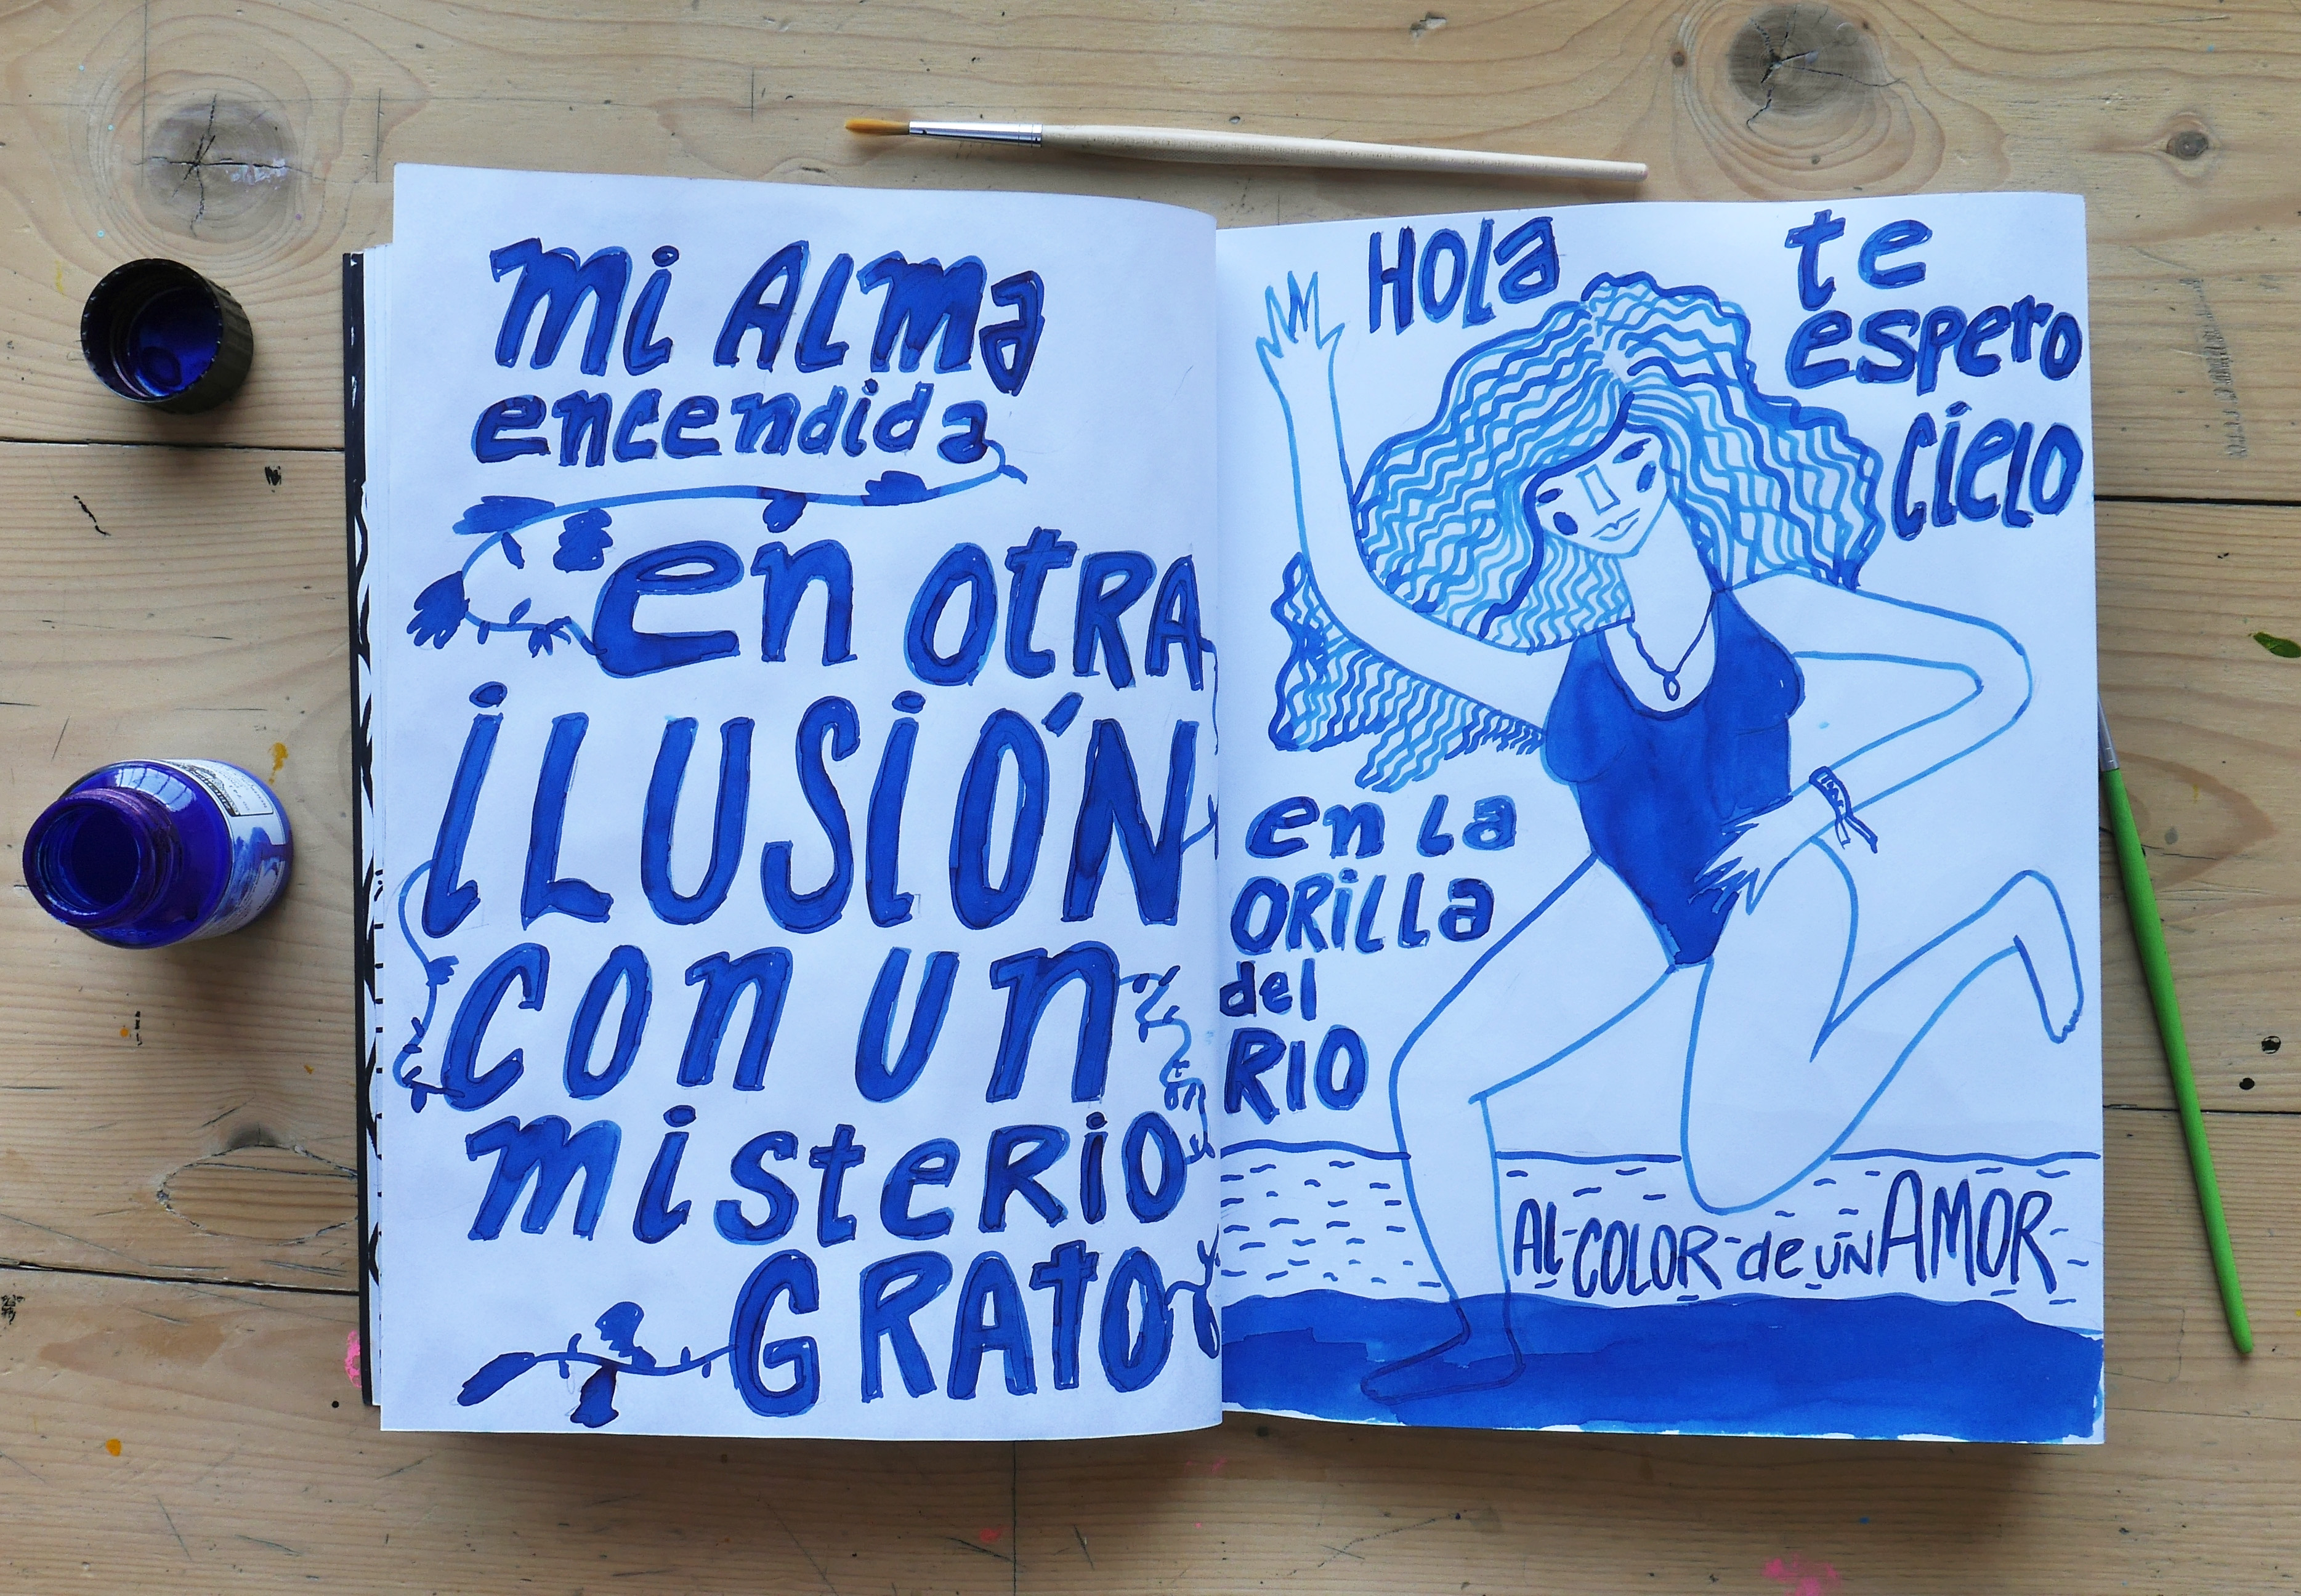 mi ALma
encendida
en otRA
iLUSiÓN
con un
misteRiO
GRAtO
HOLa
te
espero
cielo
en La
ORiLLa
del
RIO
AL COLOR de UN AMOR